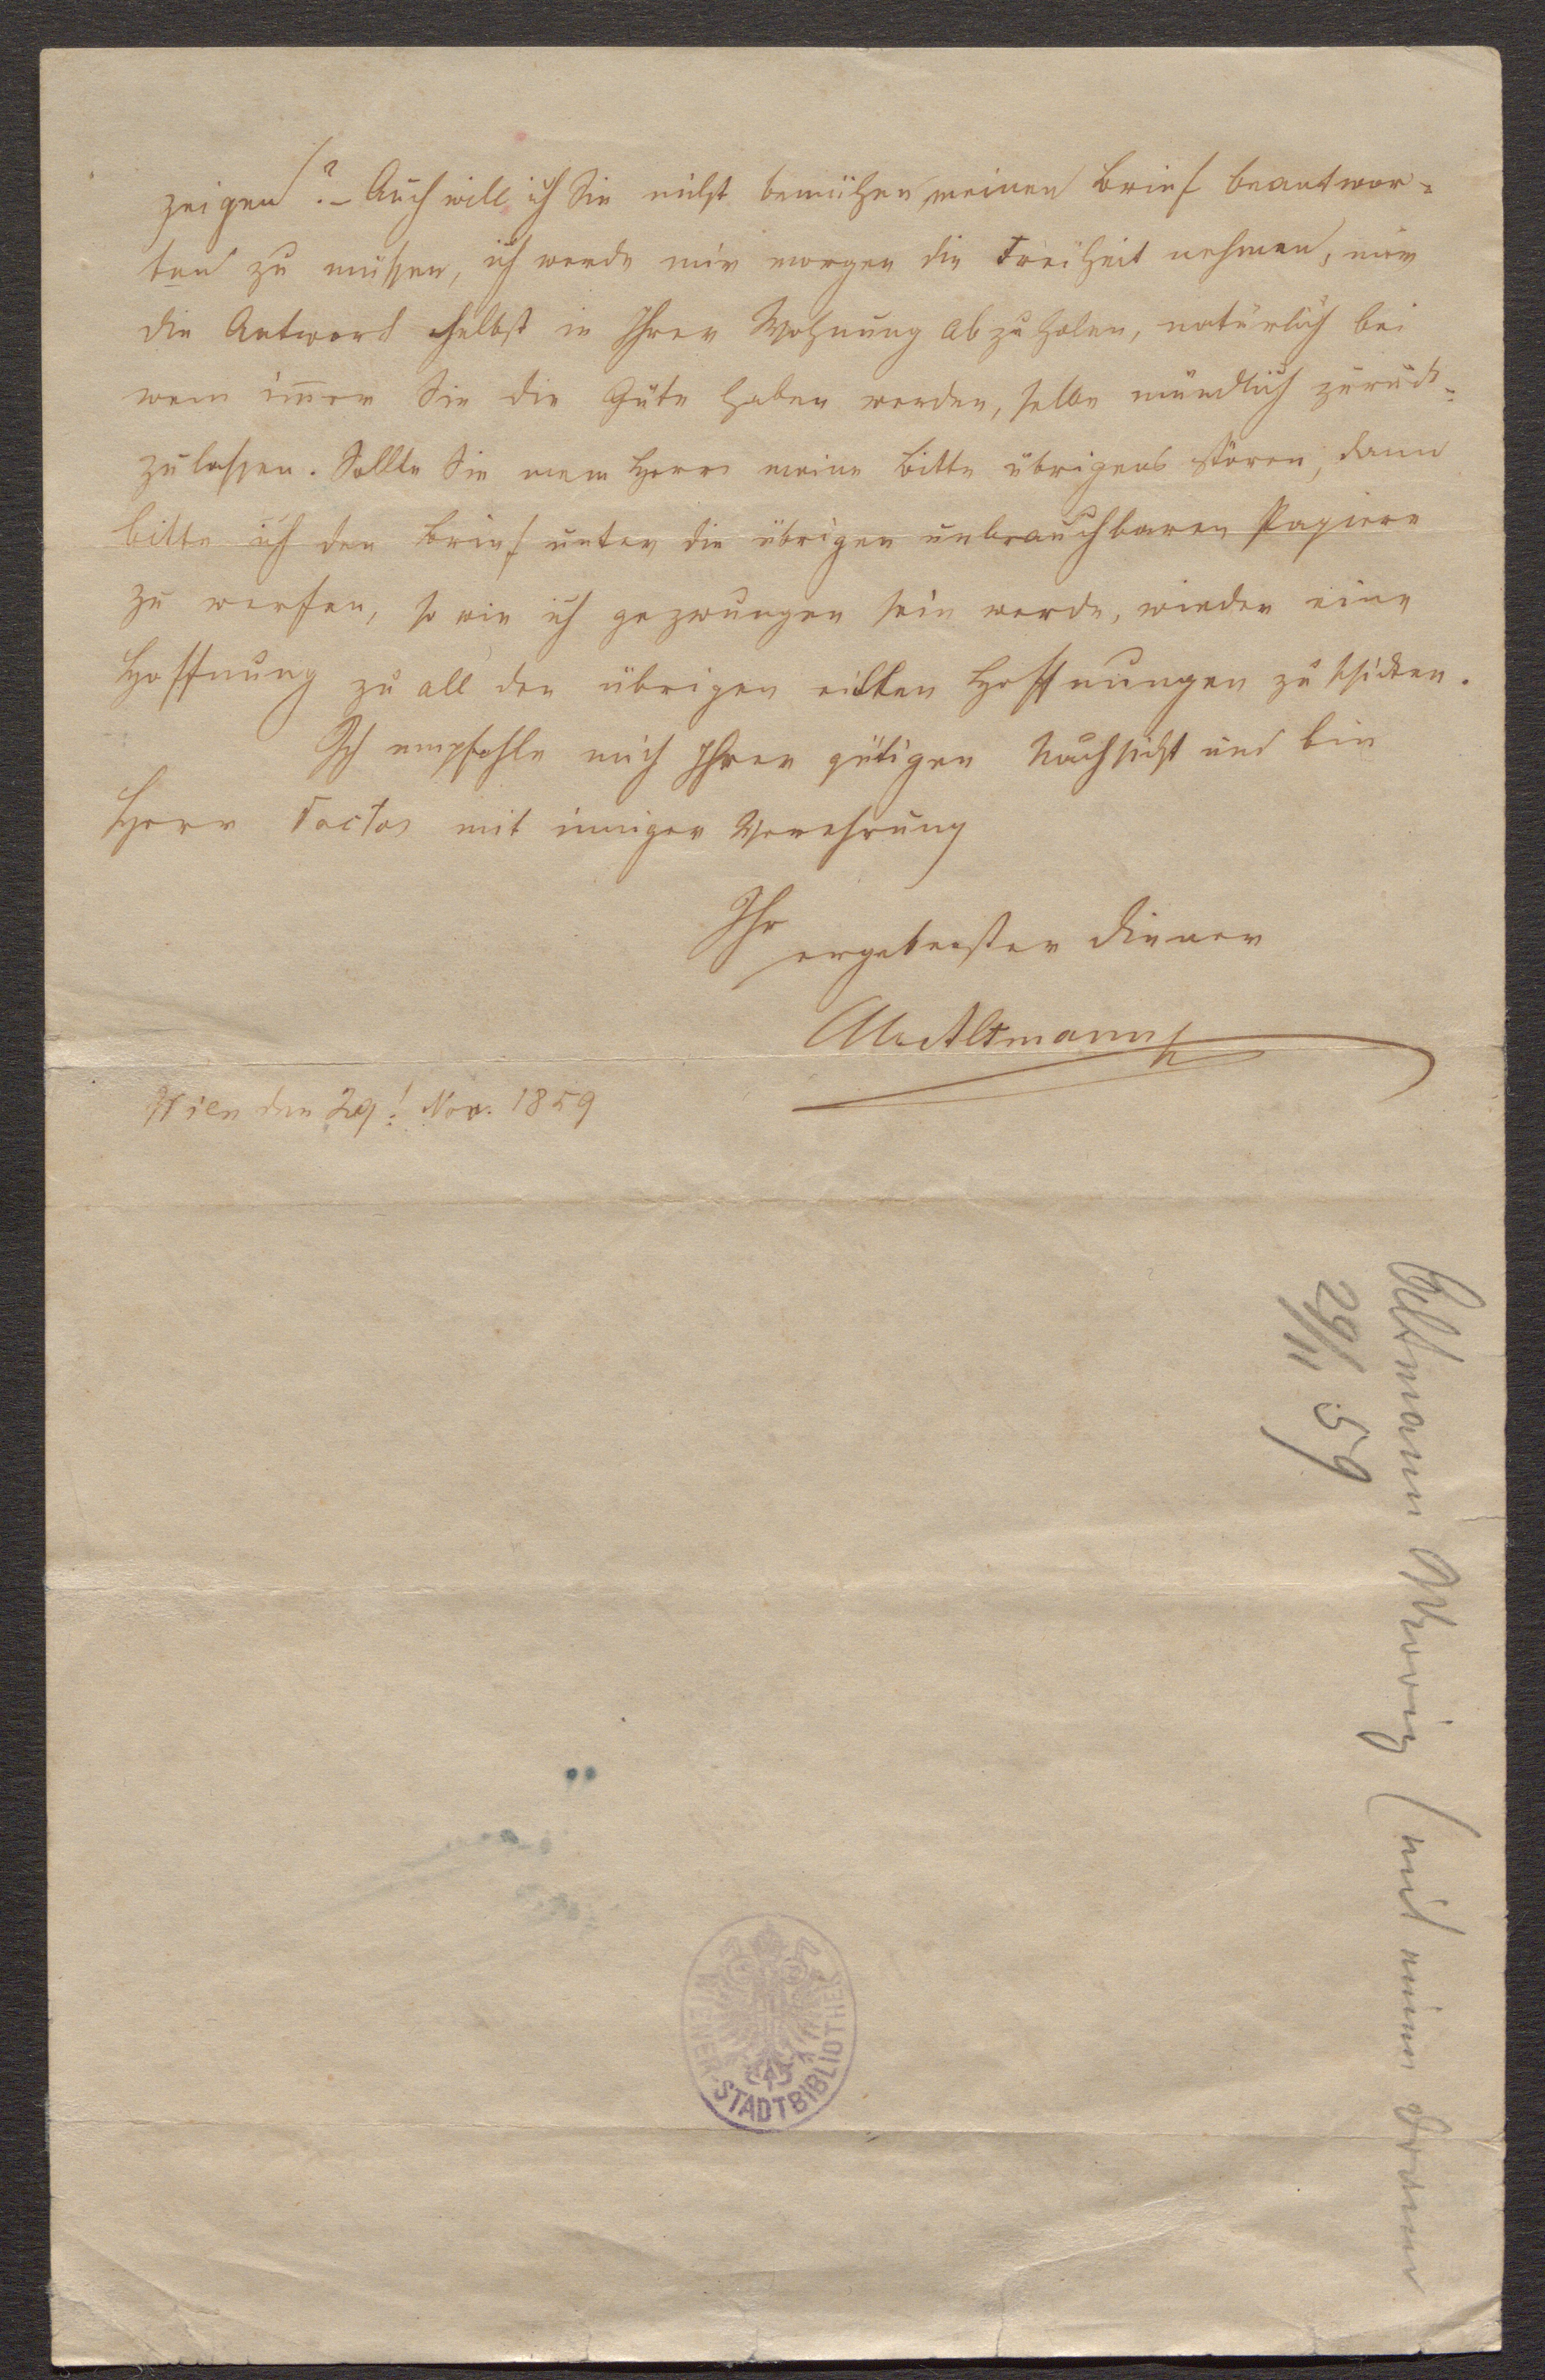 zeigen!? – Auch will ich Sie nicht bemühen, meinen Brief beantwor-
ten zu müssen, ich werde mir morgen die Freiheit nehmen, mir
die Antwort selbst in Ihrer Wohnung abzuholen, natürlich bei
wem im̄er Sie die Güte haben werden, selbe mündlich zurück-
zulassen. Sollte Sie mein Herr meine Bitte übrigens stören, dann
bitte ich den Brief unter die übrigen unbrauchbaren Papiere
zu werfen, so wie ich gezwungen sein werde, wieder eine
Hoffnung zu all den übrigen eitlen Hoffnungen zu schicken.
Ich empfehle mich Ihrer gütigen Nachsicht und bin
Herr Doctor mit inniger Verehrung
Ihr
ergebenster Diener
Altmann
Wien den 29! Nov. 1859
Altmann Moriz (mit einem Drama
29/11 59
WIENER STADTBIBLIOTHEK